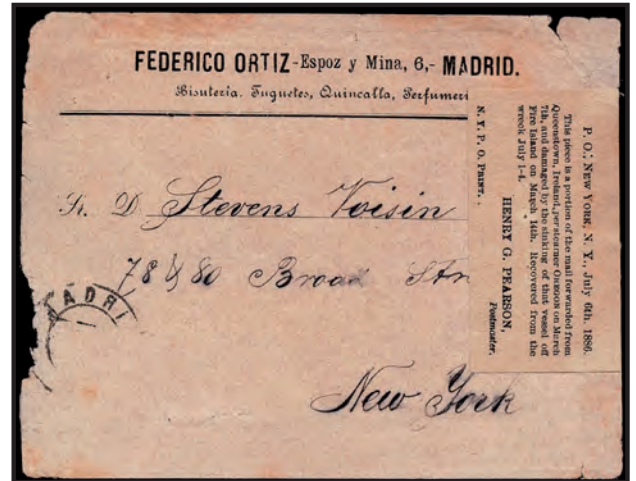 FEDERICO ORTIZ-Espoz y Mina, 6,- MADRID.
Bisutería. Juguetes, Quincalla, Perfumerí
Sr. D. Stevens Voisin
78 y 80 Broad
New York
MADRI
P. O., NEW YORK, N. Y., July 6th, 1886.
This piece is a portion of the mail forwarded from
Queenstown, Ireland, per steamer OREGON on March
7th, and damaged by the sinking of that vessel off
Fire Island on March 14th. Recovered from the
wreck July 1-4.
HENRY G. PEARSON,
Postmaster.
N. Y. P. O. PRINT.